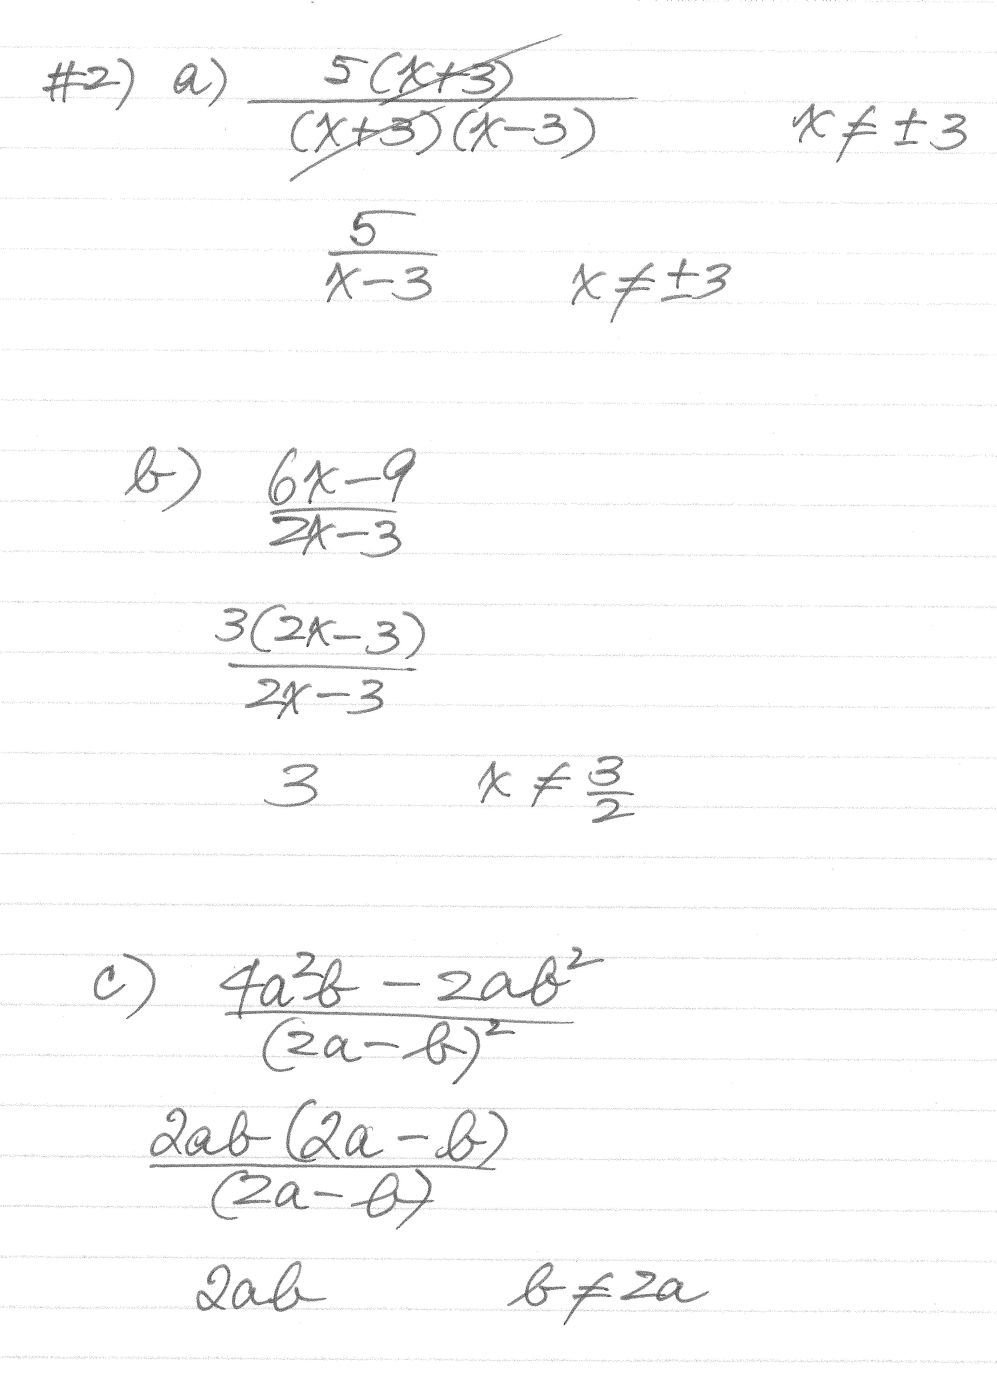 #2) a) 5(x+3) / (x+3)(x-3) x ≠ ±3
5 / x-3 x ≠ ±3
b) 6x-9 / 2x-3
3(2x-3) / 2x-3
3 x ≠ 3/2
c) 4a²b - 2ab² / (2a-b)²
2ab(2a-b) / (2a-b)
2ab b ≠ 2a